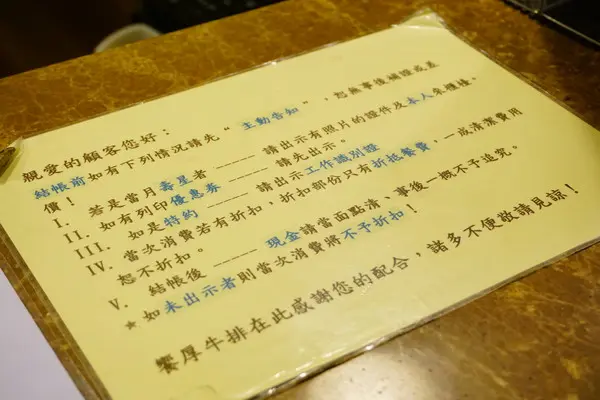 親愛的顧客您好：
結帳前如有下列情況請先“主動告知”，恕無事後補證或差
價！
I. 若是當月壽星者 ______ 請出示有照片的證件及本人來櫃檯。
II. 如有列印優惠券 ______ 請先出示。
III. 如是特約 ______ 請出示工作識別證
IV. 當次消費若有折扣，折扣部份只有折抵餐費，一成清潔費用
恕不折扣。
V. 結帳後 ______ 現金請當面點清、事後一概不予追究。
★如未出示者則當次消費將不予折扣！
饗厚牛排在此感謝您的配合，諸多不便敬請見諒！